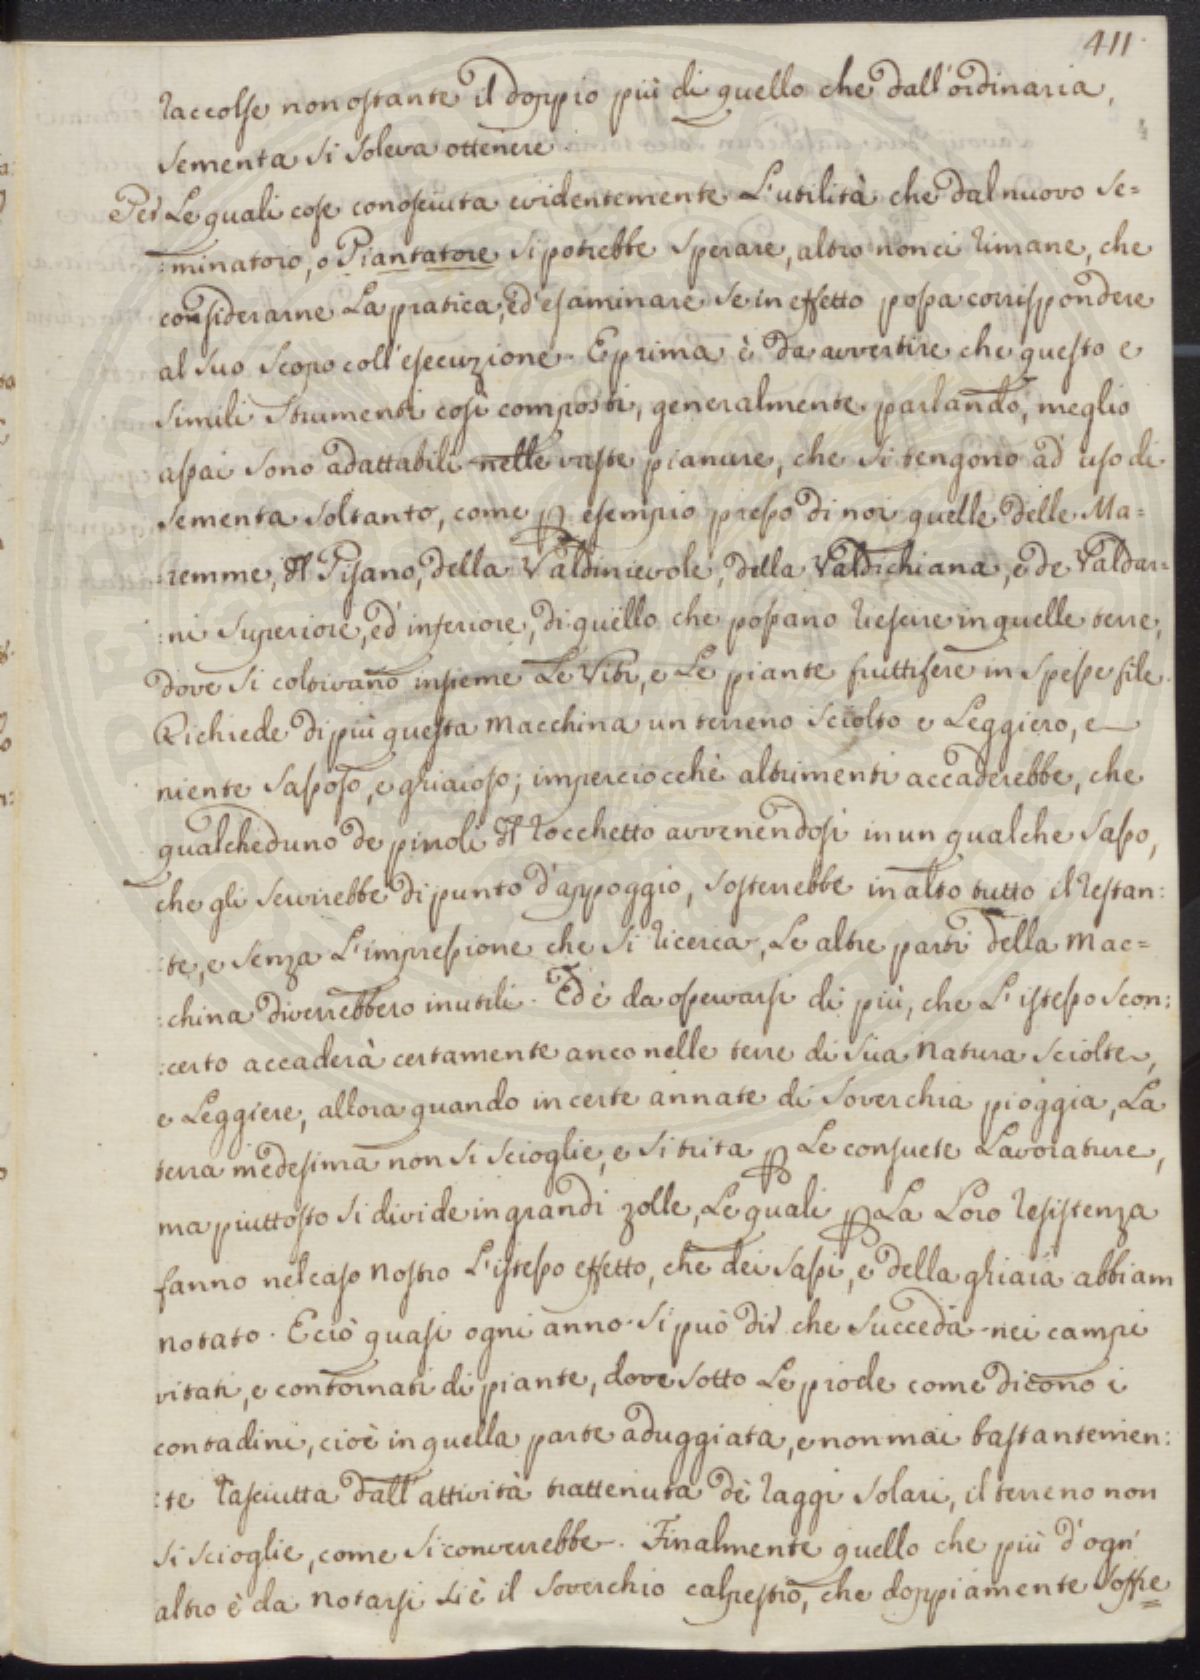 411.
raccolse nonostante il doppio più di quello che dall'ordinaria
sementa si soleva ottenere.
Per le quali cose conosciuta evidentemente l'utilità che dal nuovo se=
:minatoio, o Piantatore si potrebbe sperare, altro non ci rimane, che
considerarne la pratica, ed esaminare se in effetto possa corrispondere
al suo scopo coll'esecuzione. E prima è da avvertire che questo e
simili strumenti così composti, generalmente parlando, meglio
assai sono adattabili nelle vaste pianure, che si tengono ad uso di
sementa soltanto, come p esempio presso di noi quelle delle Ma=
:remme, dl Pisano, della Valdinievole, della Valdichiana, e de Valdar=
:ni superiore, ed inferiore, di quello che possano riescire in quelle terre,
dove si coltivano insieme le Viti, e le piante fruttifere in spesse file.
Richiede di più questa macchina un terreno sciolto e leggiero, e
niente sassoso, e ghiaioso; imperciocchè altrimenti accaderebbe, che
qualcheduno de pinoli dl rocchetto avvenendosi in un qualche sasso,
che gli servirebbe di punto d'appoggio, sosterrebbe in alto tutto il restan:
:te, e senza l'impressione che si ricerca, le altre parti della mac=
:china diverrebbero inutili. Ed è da osservarsi di più, che l'istesso scon:
:certo accaderà certamente anco nelle terre di sua natura sciolte,
e leggiere, allora quando in certe annate di soverchia pioggia, la
terra medesima non si scioglie, e si trita p le consuete lavorature,
ma piuttosto si divide in grandi zolle, le quali p la loro resistenza
fanno nel caso nostro l'istesso effetto, che dei sassi, e della ghiaia abbiam
notato. E ciò quasi ogni anno si può dir che succeda nei campi
vitati, e contornati di piante, dove sotto le prode come dicono i
contadini, cioè in quella parte aduggiata, e non mai bastantemen:
:te rasciutta dall'attività trattenuta de raggi solari, il terreno non
si scioglie, come si converrebbe. Finalmente quello che più d'ogn'
altro è da notarsi si è il soverchio calpestio, che doppiamente soffre